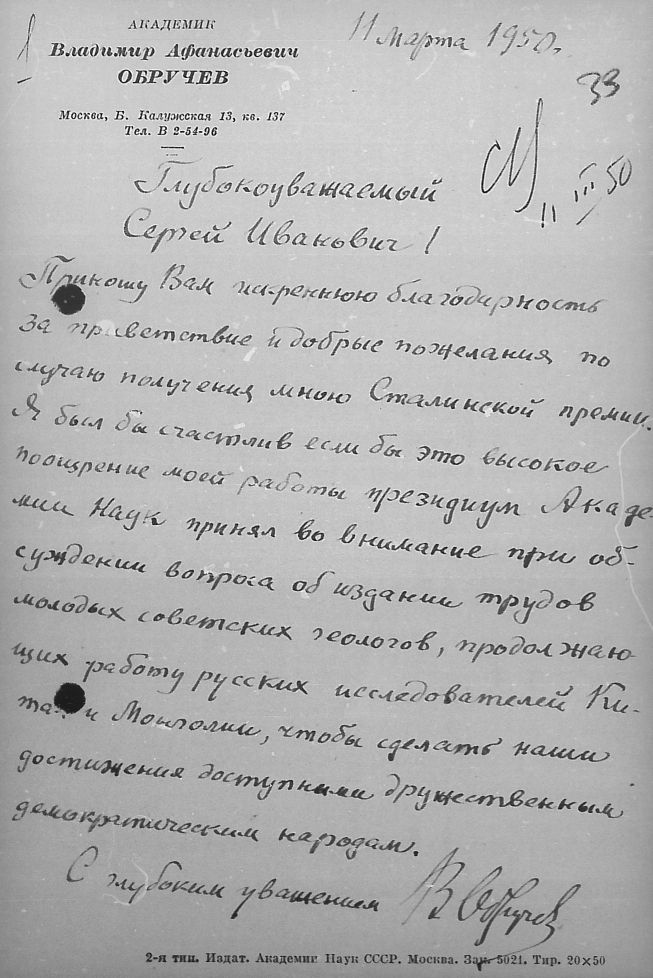 АКАДЕМИК
Владимир Афанасьевич
ОБРУЧЕВ
Москва, Б. Калужская 13, кв. 137
Тел. В 2-54-96
11 Марта 1950 г.
33
11 III 50
Глубокоуважаемый
Сергей Иванович!
Приношу Вам искреннюю благодарность
за приветствие и добрые пожелания по
случаю получения мною Сталинской премии.
Я был бы счастлив если бы это высокое
поощрение моей работы президиум Акаде-
мии Наук принял во внимание при об-
суждении вопроса об издании трудов
молодых советских геологов, продолжаю-
щих работу русских исследователей Ки-
тая и Монголии, чтобы сделать наши
достижения доступными дружественным
демократическим народам.
С глубоким уважением ВОбручев
2-я тип. Издат. Академии Наук СССР. Москва. Зак. 5021. Тир. 20×50